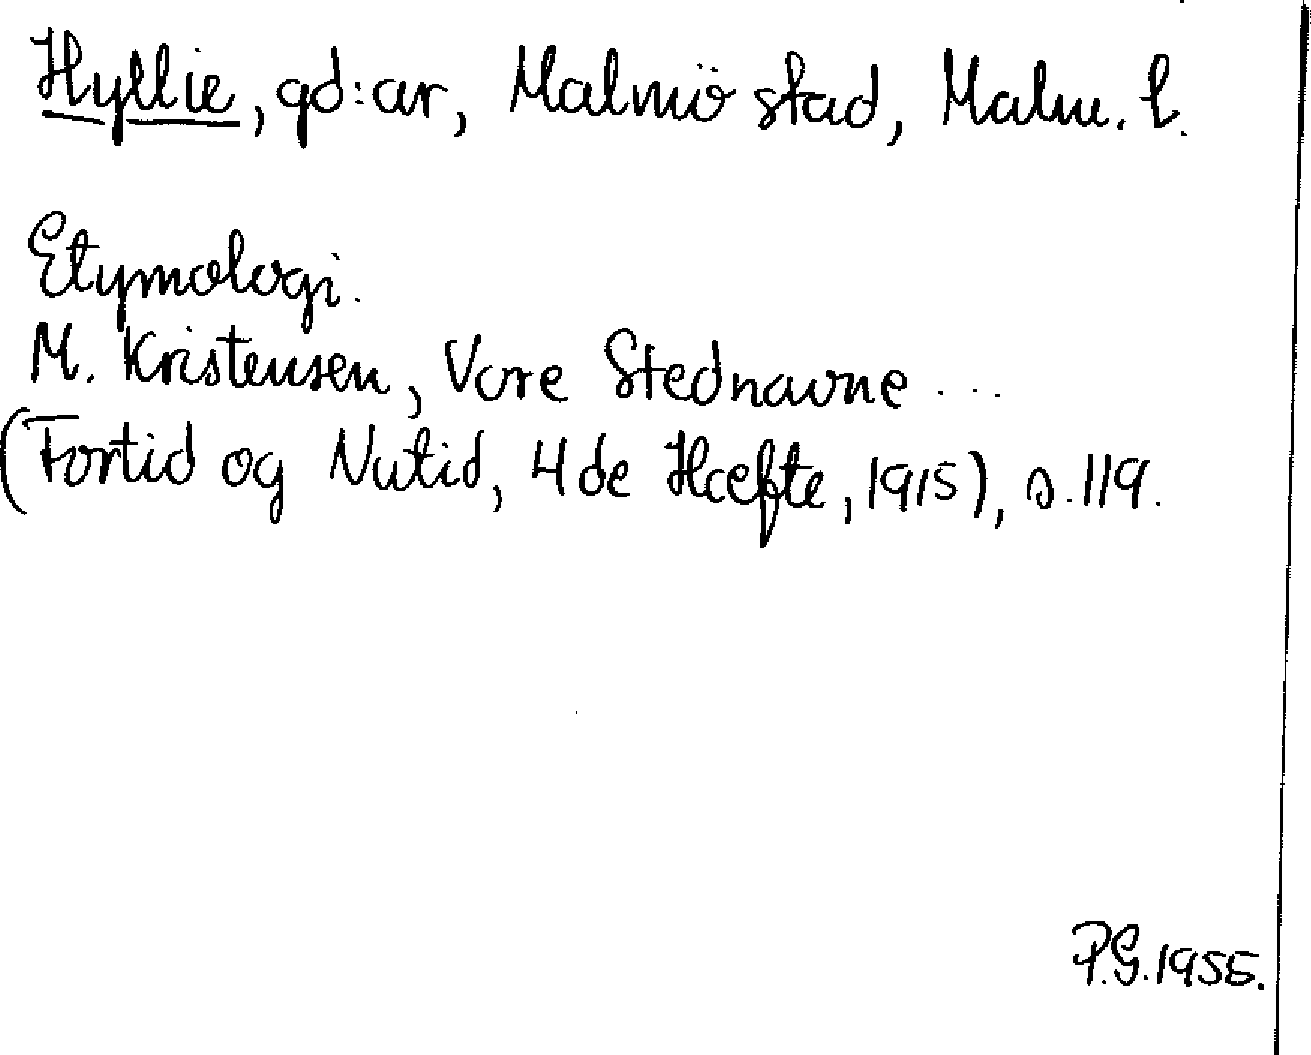 Hyllie, gd:ar, Malmö stad, Malm. l.
Etymologi.
M. Kristensen, Vore Stednavne ...
(Fortid og Nutid, 4de Hæfte, 1915), s. 119.
P.G. 1955.